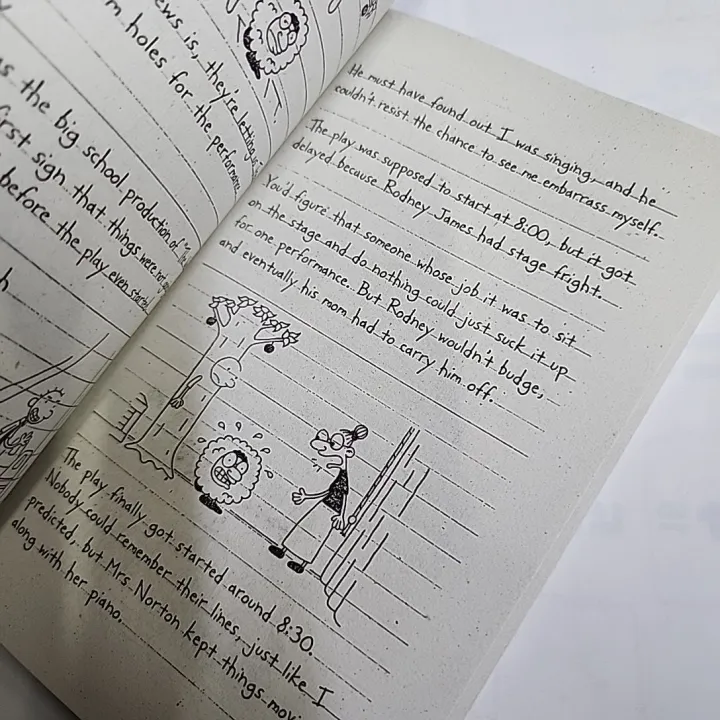 ews is, they're letting us
m holes for the performance.
s the big school production of "The
first sign that things were not
before the play even started
h
He must have found out I was singing, and he
couldn't resist the chance to see me embarrass myself.
The play was supposed to start at 8:00, but it got
delayed because Rodney James had stage fright.
You'd figure that someone whose job it was to sit
on the stage and do nothing could just suck it up
for one performance. But Rodney wouldn't budge,
and eventually his mom had to carry him off.
The play finally got started around 8:30.
Nobody could remember their lines, just like I
predicted, but Mrs. Norton kept things mov
along with her piano.